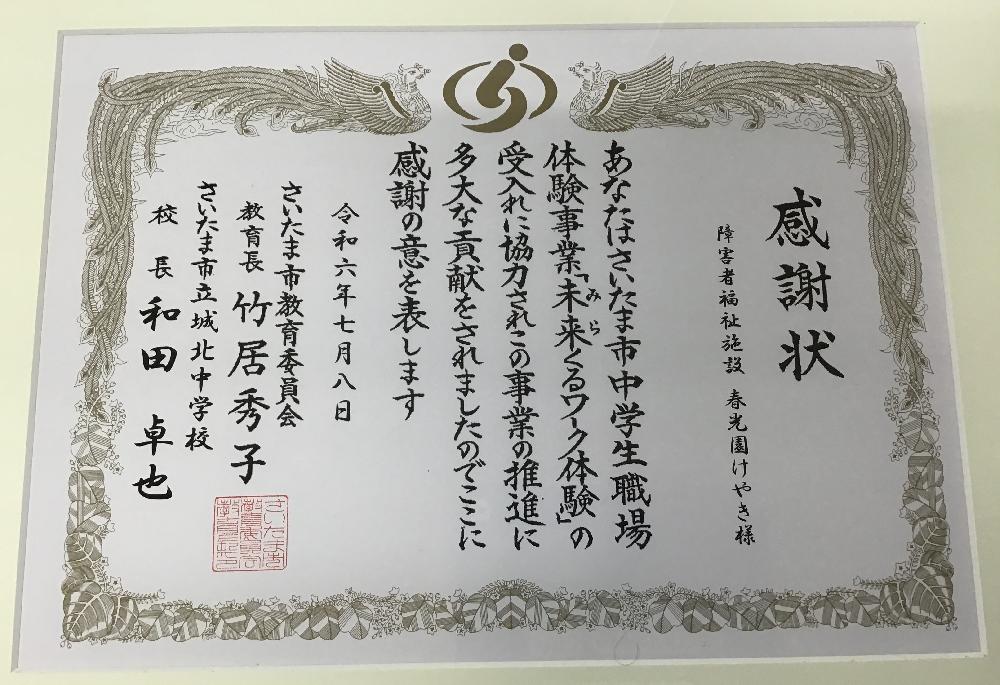 感謝状
障害者福祉施設 春光園けやき様
あなたはさいたま市中学生職場
体験事業「未来くるワーク体験」の
みら
受入れに協力されこの事業の推進に
多大な貢献をされましたのでここに
感謝の意を表します
令和六年七月八日
さいたま市教育委員会
教育長 竹居秀子
さいたま市立城北中学校
校長 和田卓也